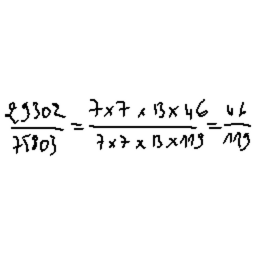 29302/75803 = 7×7×13×46/7×7×13×119 = 46/119